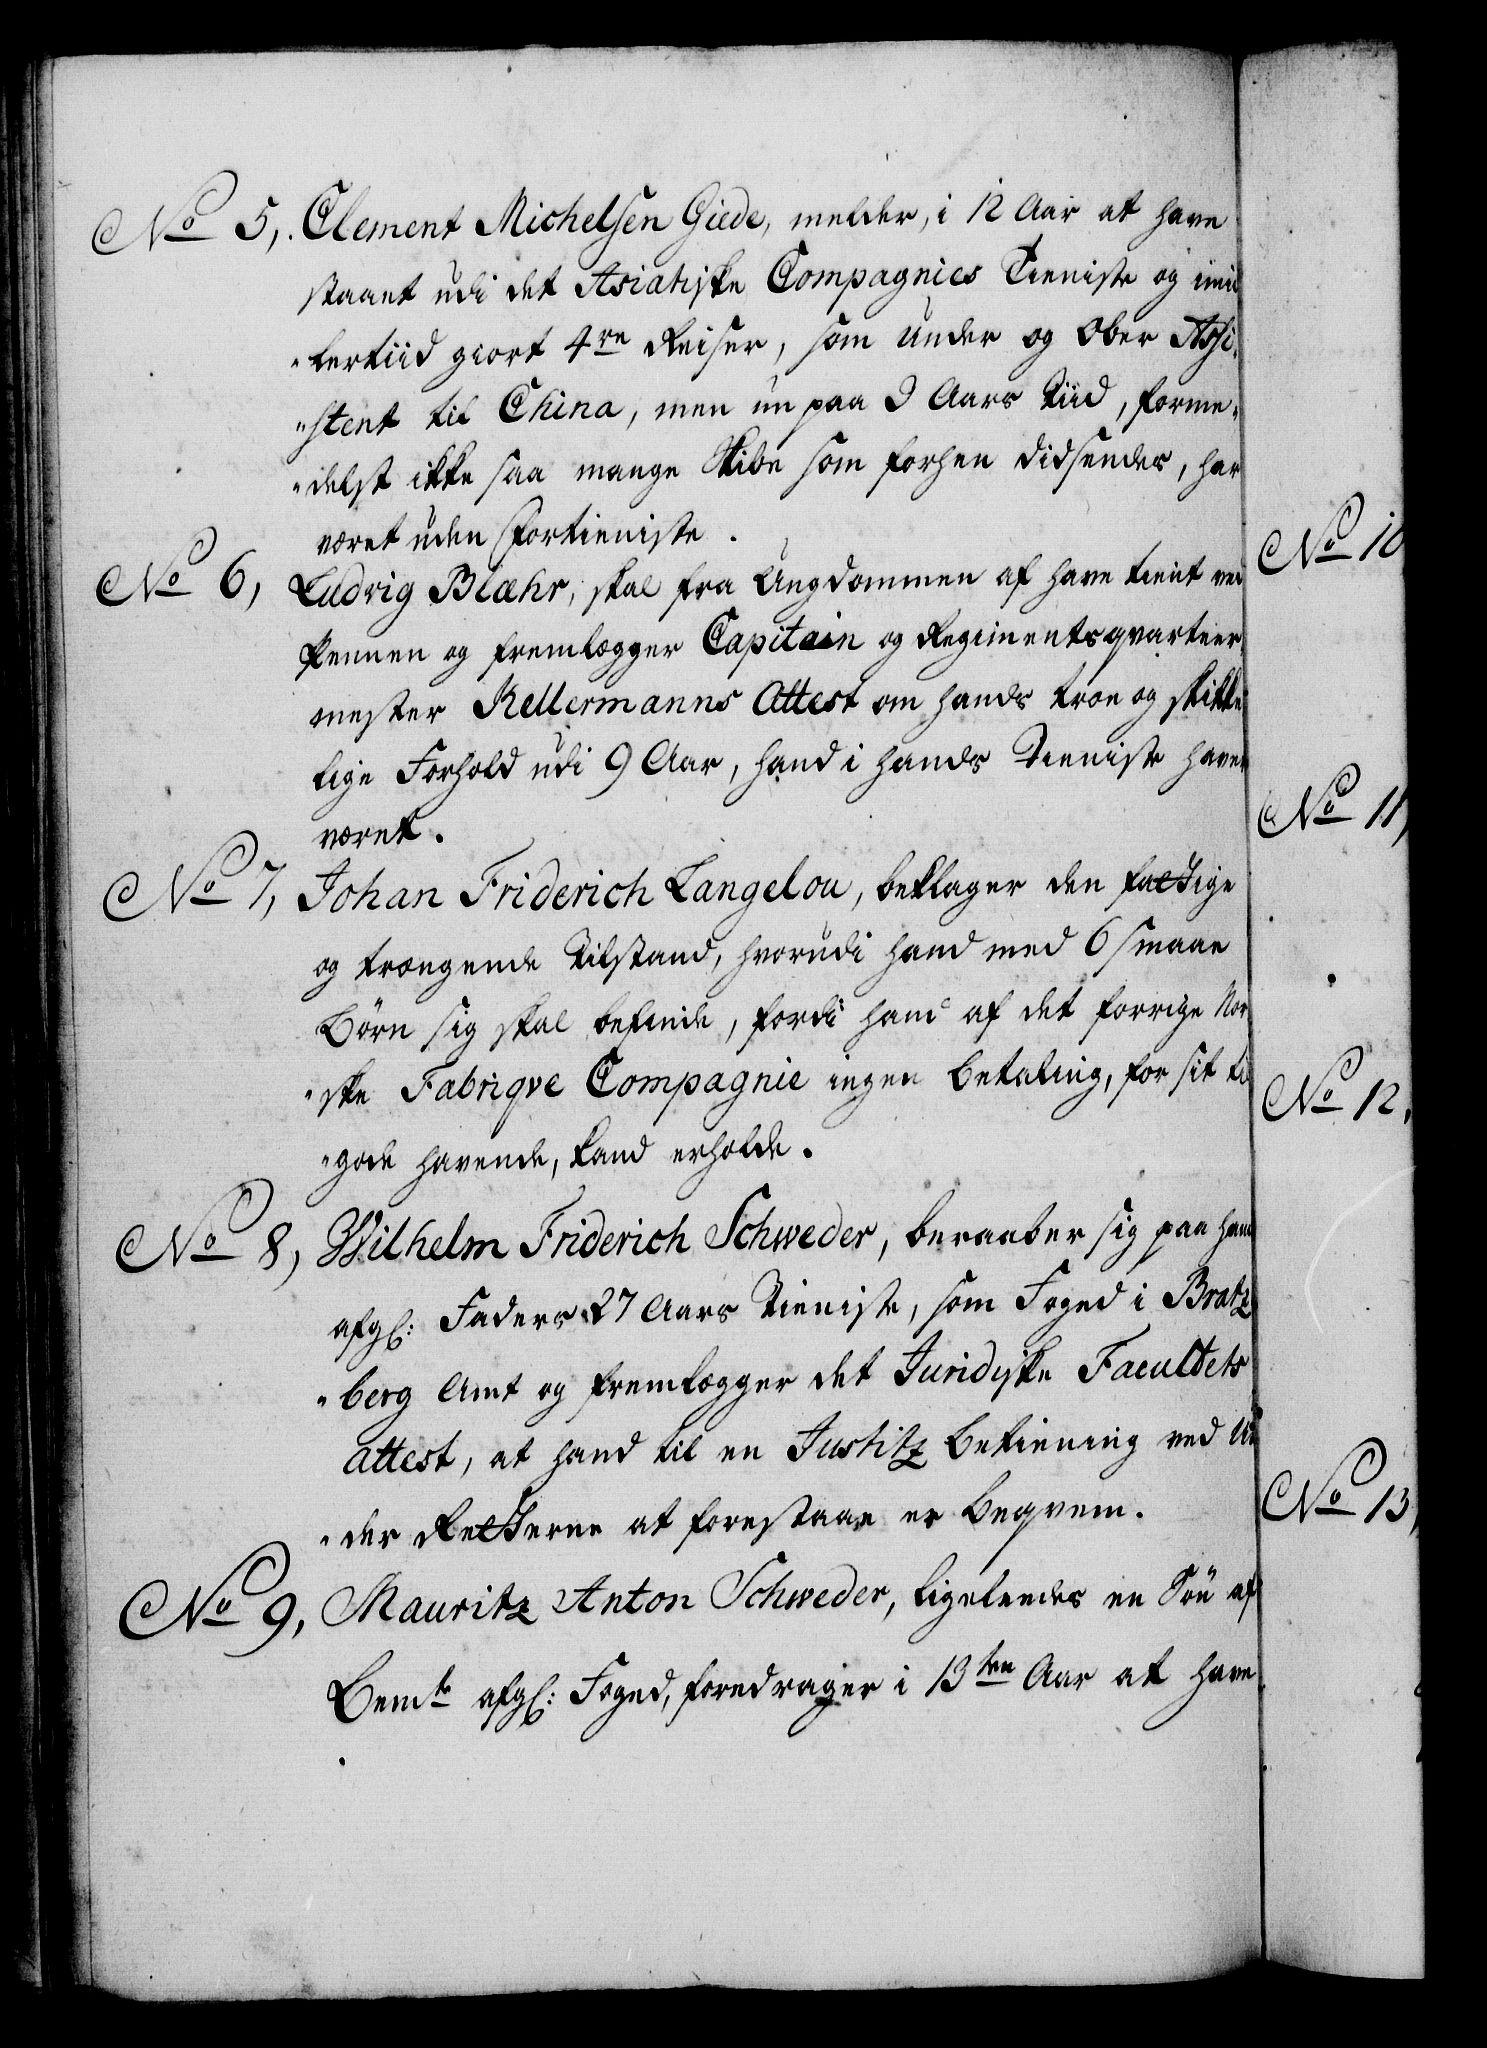 No 5, Clement Michelsen Giede, melder, i 12 Aar at have
staaet udi det Asiatiske Compagnies Tieniste og imid
„lertiid giort 4re Reiser, som Under og Ober Assi„
„stent til China, men nu paa 3 Aars Tiid, forme„
„delst ikke saa mange Skibe som forhen didsendes, har
været uden Fortieniste.
No 6, Ludvig Blæhr, skal fra Ungdommen af have tient ved
Pennen og fremlægger Capitain og Regimentsqvarteer
mester Kellermanns Attest om hands troe og skikke
lige Forhold udi 9 Aar, hand i hands Tieniste haver
været.
No 7, Johan Friderich Langelou, beklager den fattige
og trængende Tilstand, hvorudi hand med 6 smaae
Børn sig skal befinde, fordi hand af det forrige Nor
„ske Fabriqve Compagnie ingen Betaling, for sit til
„gode havende, kand erholde.
No 8, Wilhelm Friderich Schweder, beraaber sig paa hans
afgl: Faders 27 Aars Tieniste, som Foged i Bratz
„berg Amt og fremlægger det Juridiske Facultets
Attest, at hand til en Justitz Betiening ved Un
„der Retterne at forestaae er beqvem.
No 9, Mauritz Anton Schweder, ligeledes en Søn af
Bemte afgl: Foged, foredrager i 13ten Aar at have
No 10
No 11,
No 12,
No 13,